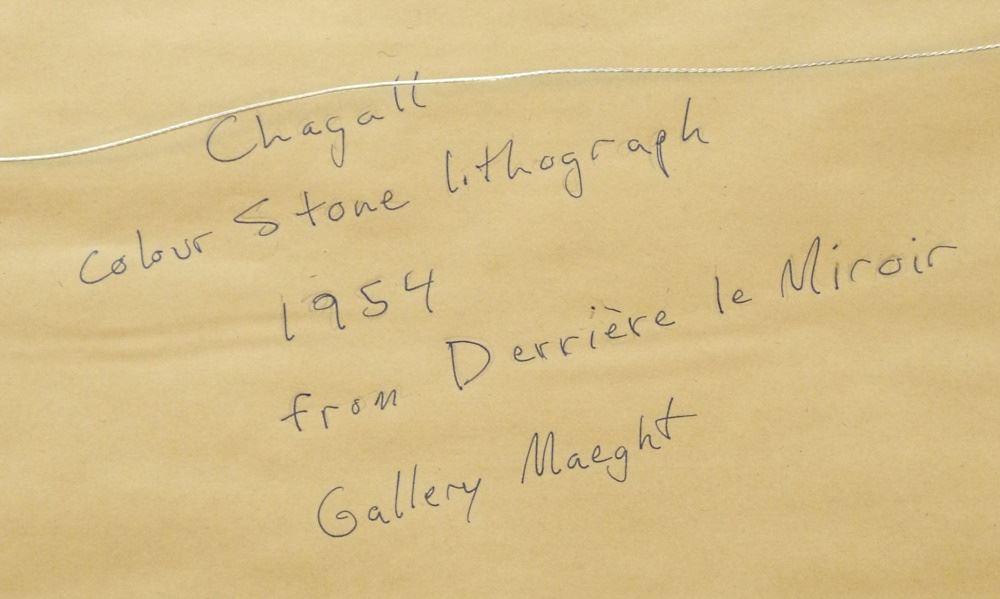 Chagall
Colour Stone lithograph
1954
from Derrière le Miroir
Gallery Maeght